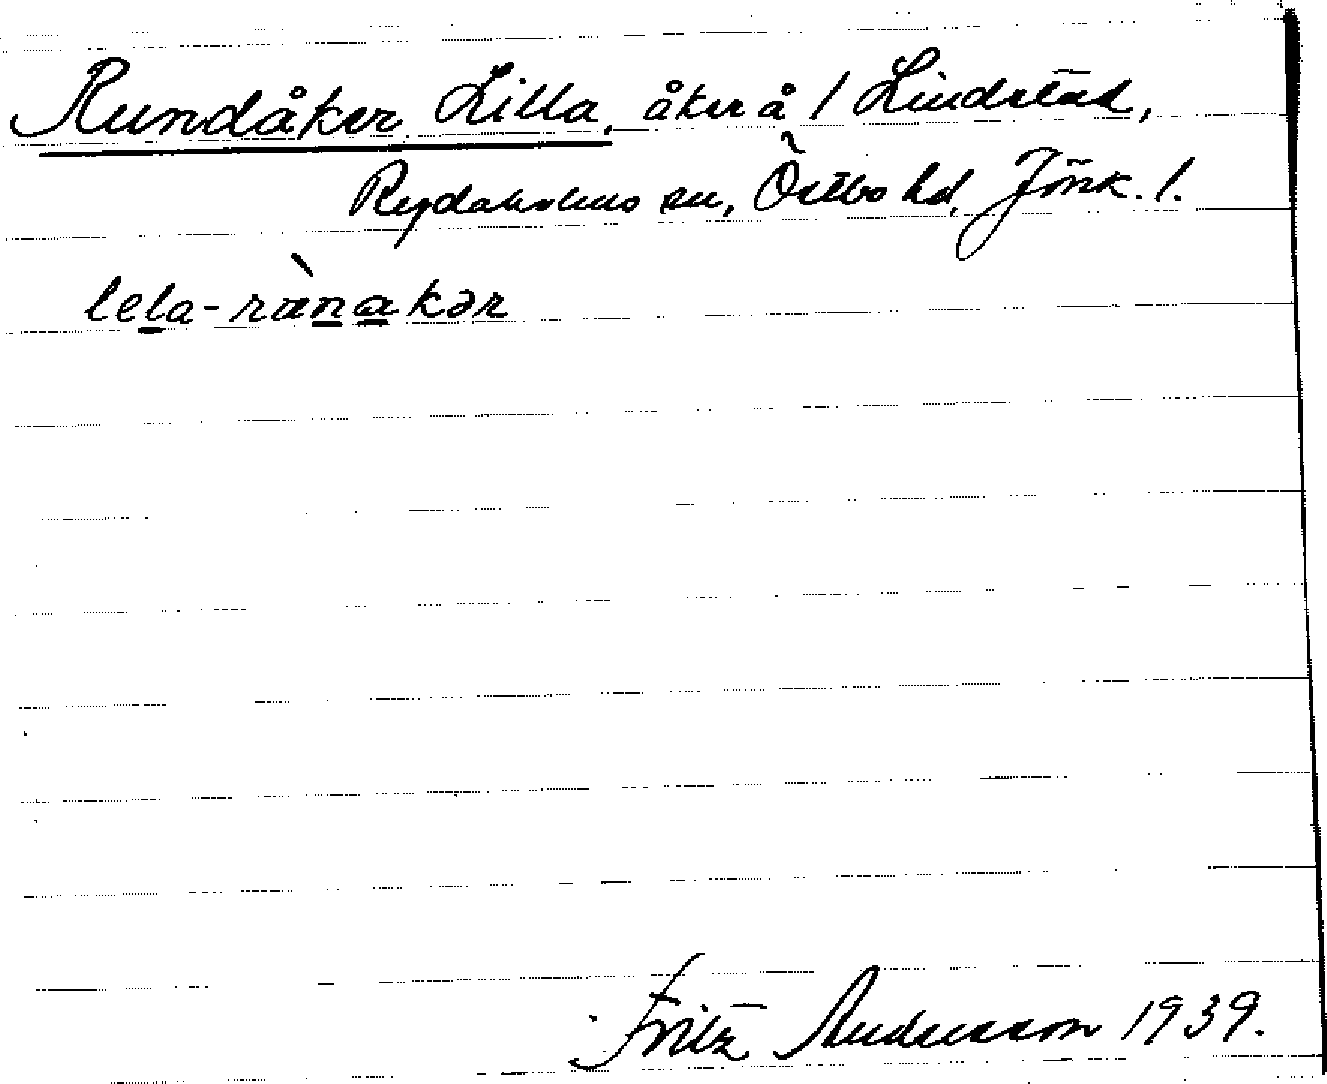 Rundåker Lilla, åker å 1 Lindstad,
Rydaholms sn, Östbo hd, Jönk. l.
lela-rànakər
Fritz Andersson 1939.